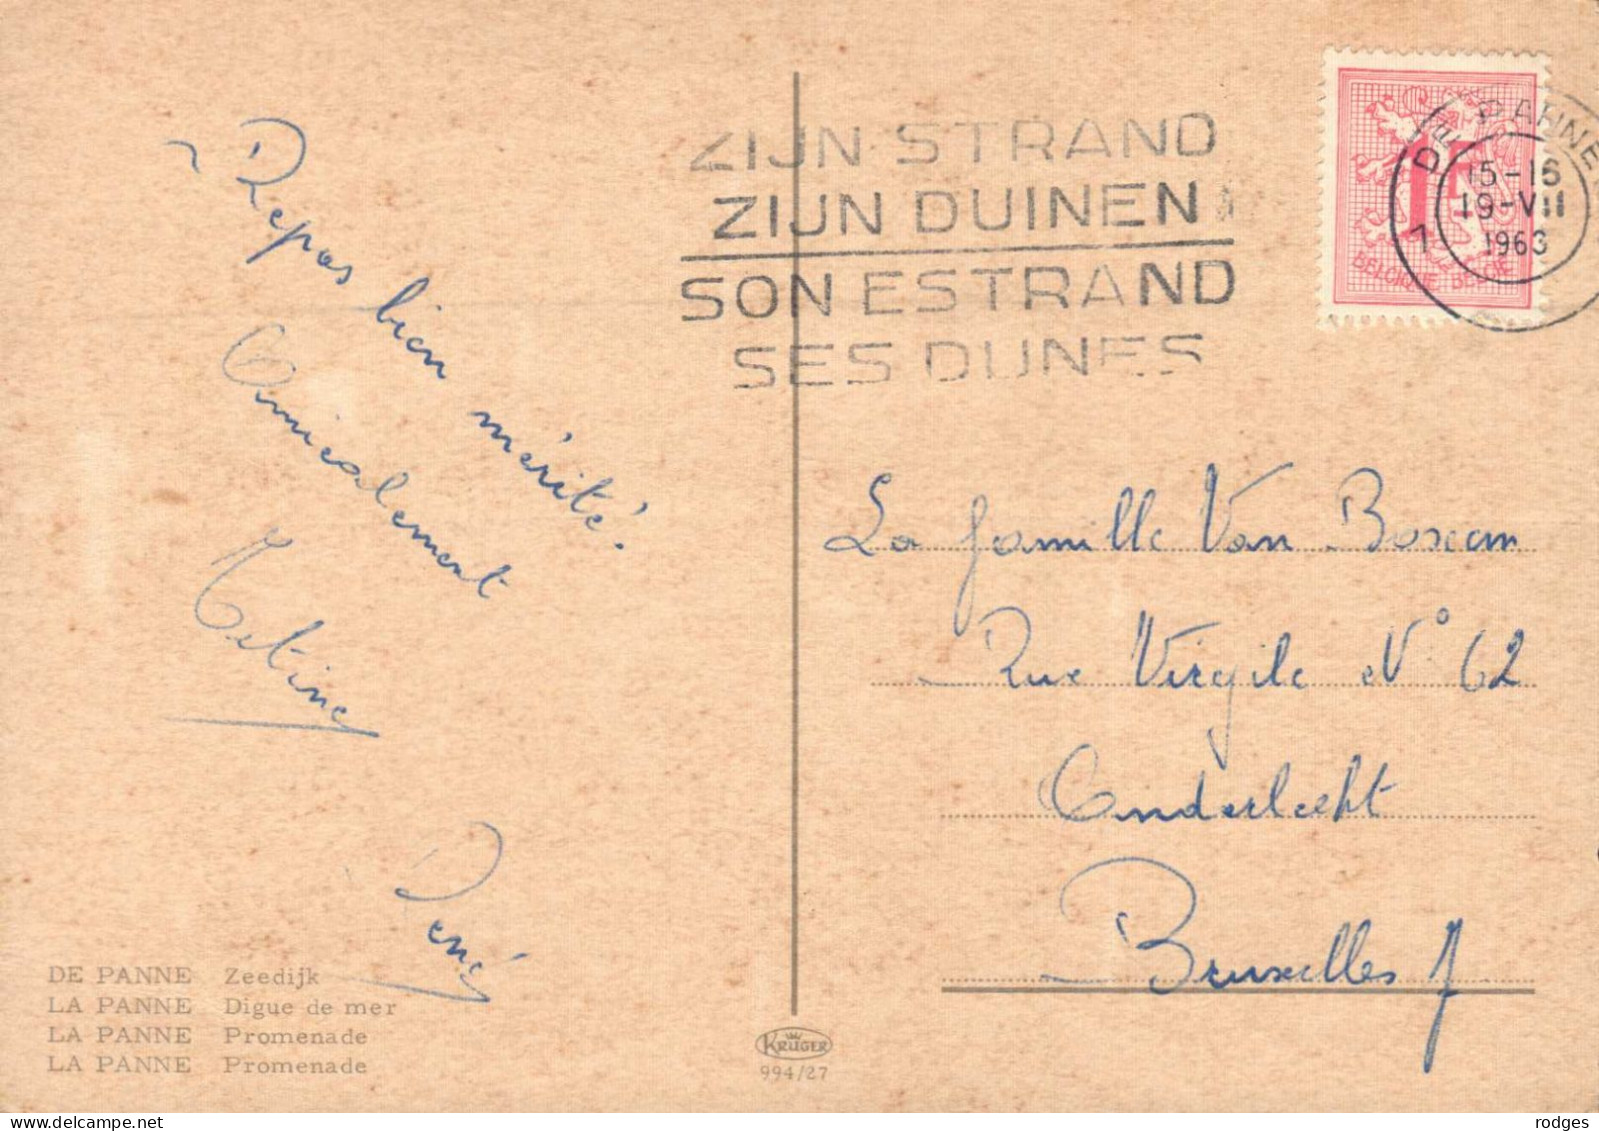 Repos bien mérité.
Amicalement
Titine
René
DE PANNE Zeedijk
LA PANNE Digue de mer
LA PANNE Promenade
LA PANNE Promenade
ZIJN STRAND
ZIJN DUINEN
SON ESTRAND
SES DUNES
DE PANNE
15-16
19-VII
1963
1
BELGIQUE BELGIE
La famille Van
Rue Virgile N° 62
Anderlecht
Bruxelles 7
KRÜGER
994/27
Delcampe.net
rodges